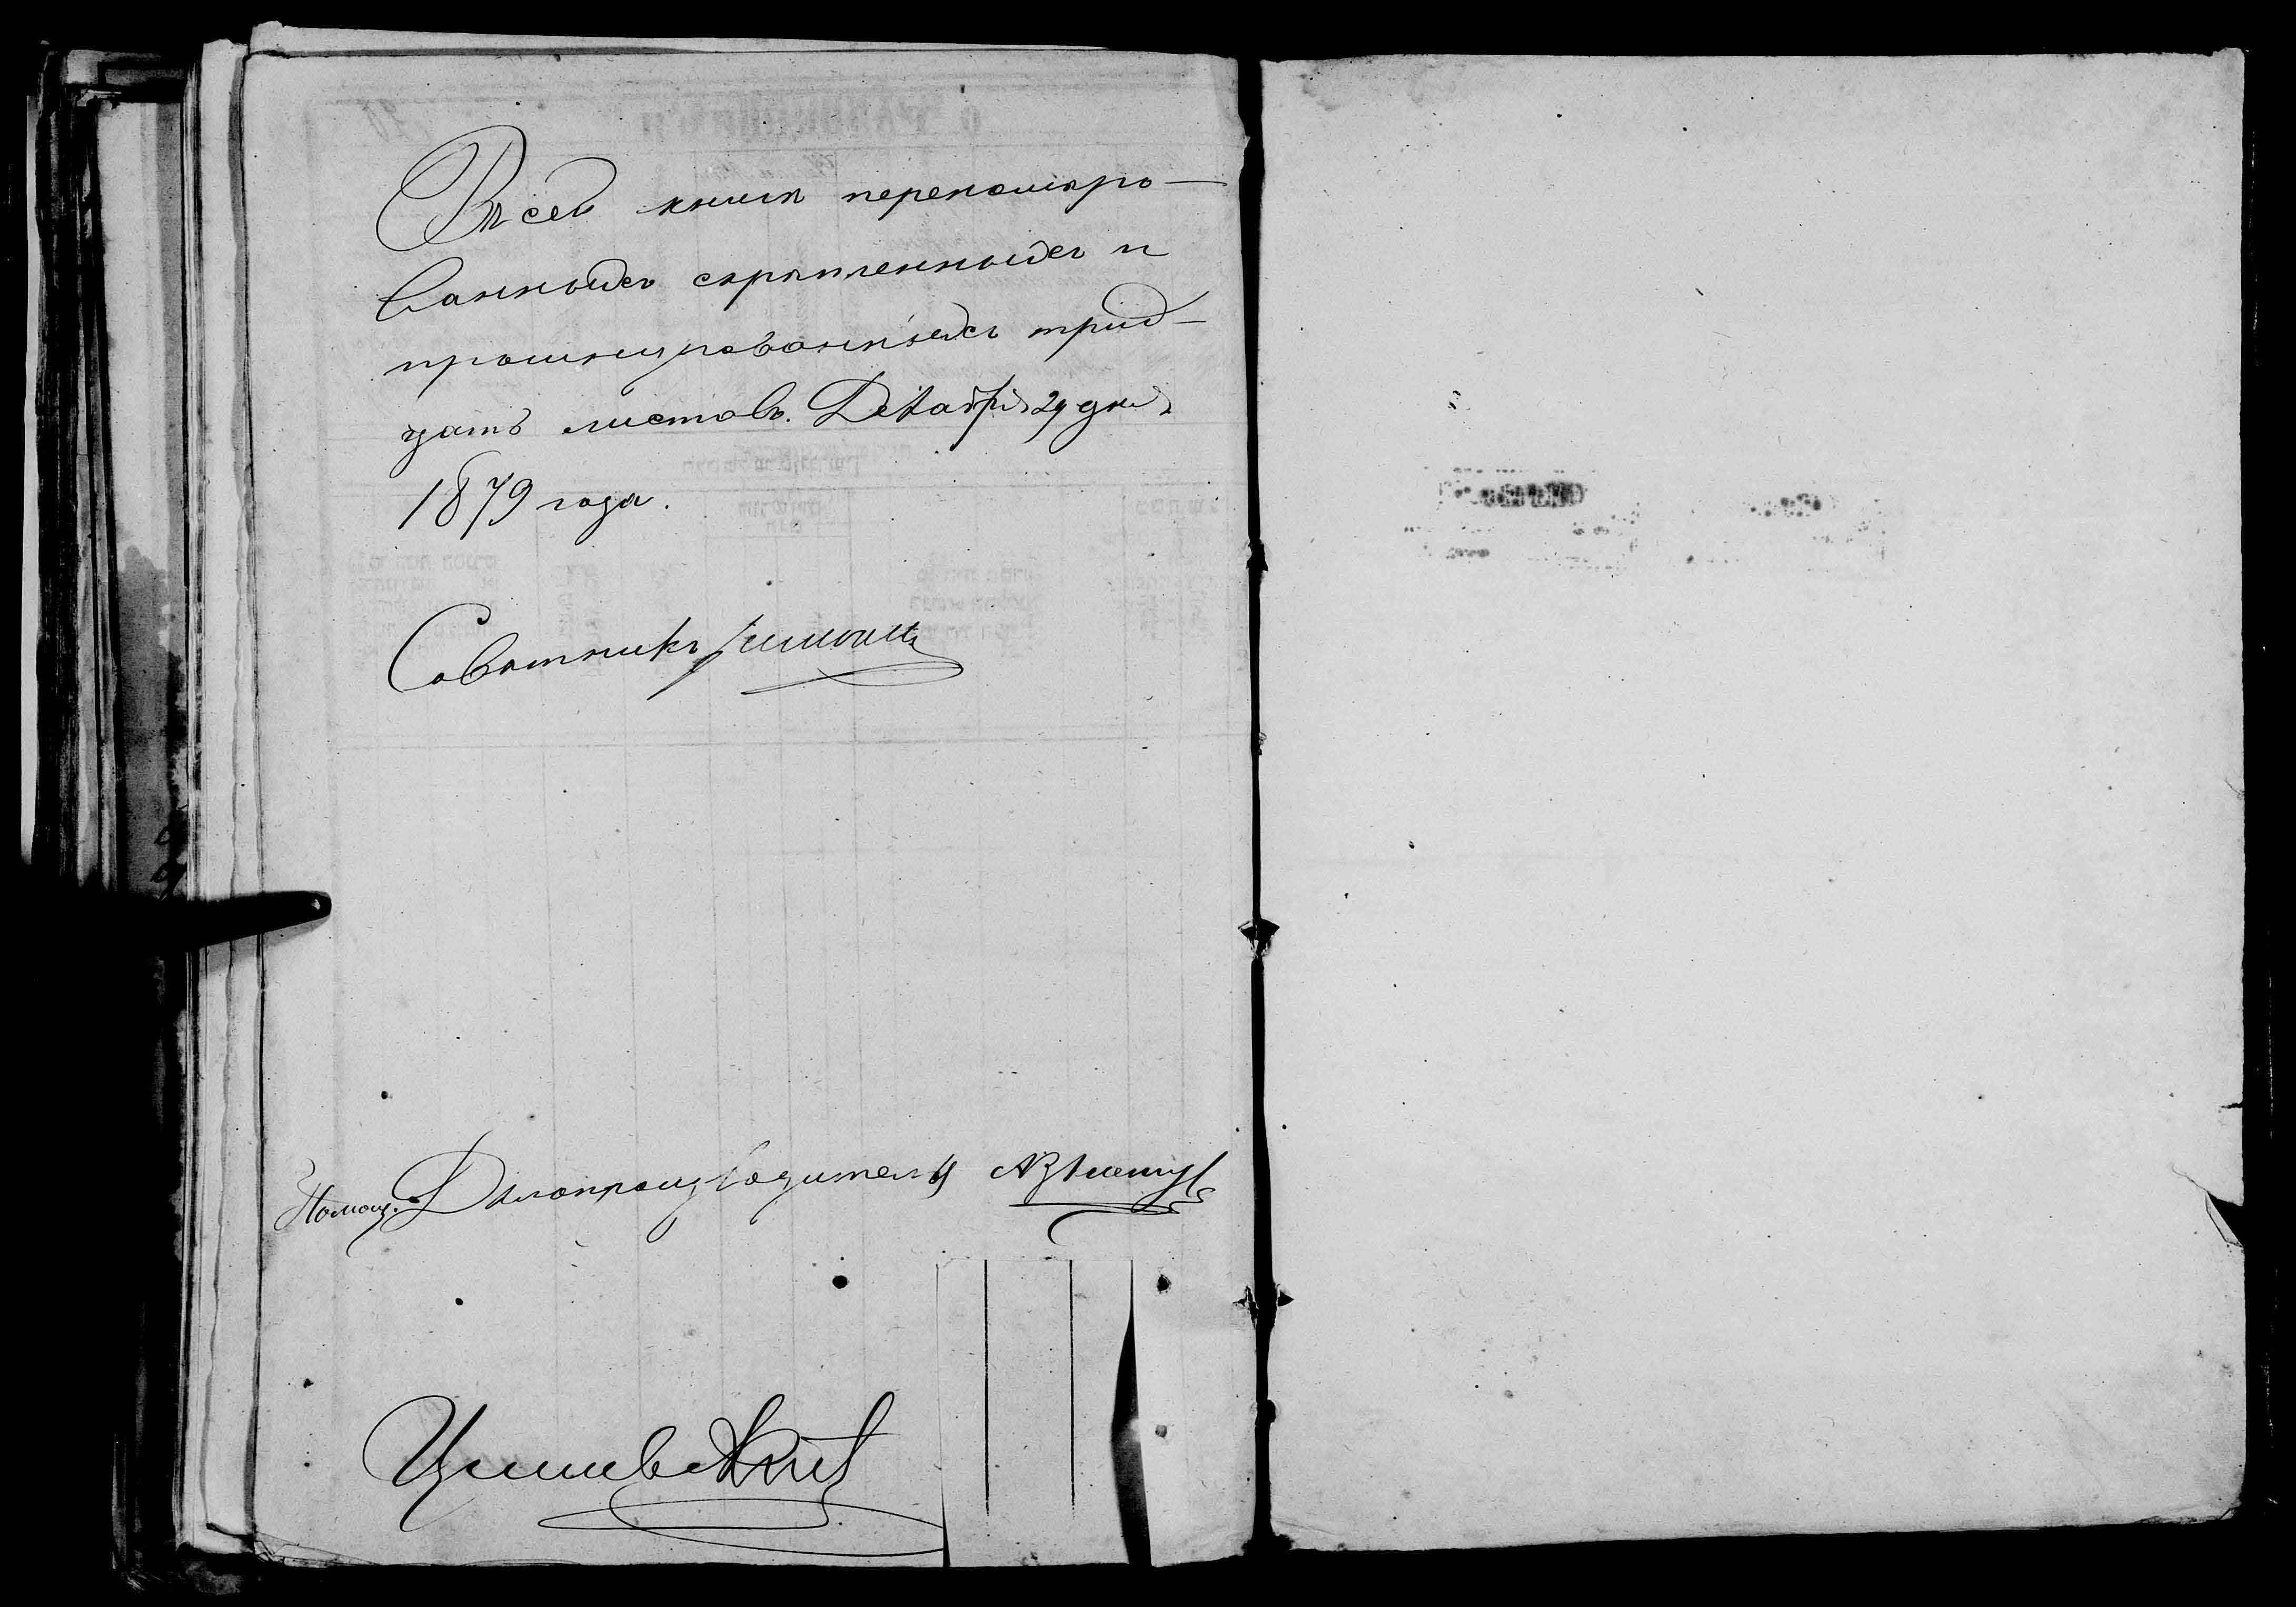 Въ сей книгѣ переномеро-
ванныхъ скрѣпленныхъ и
прошнурованныхъ трид-
цать листовъ. Декабря 29 дня
1879 года.
Совѣтникъ
Помощ. Дѣлопроизводителя